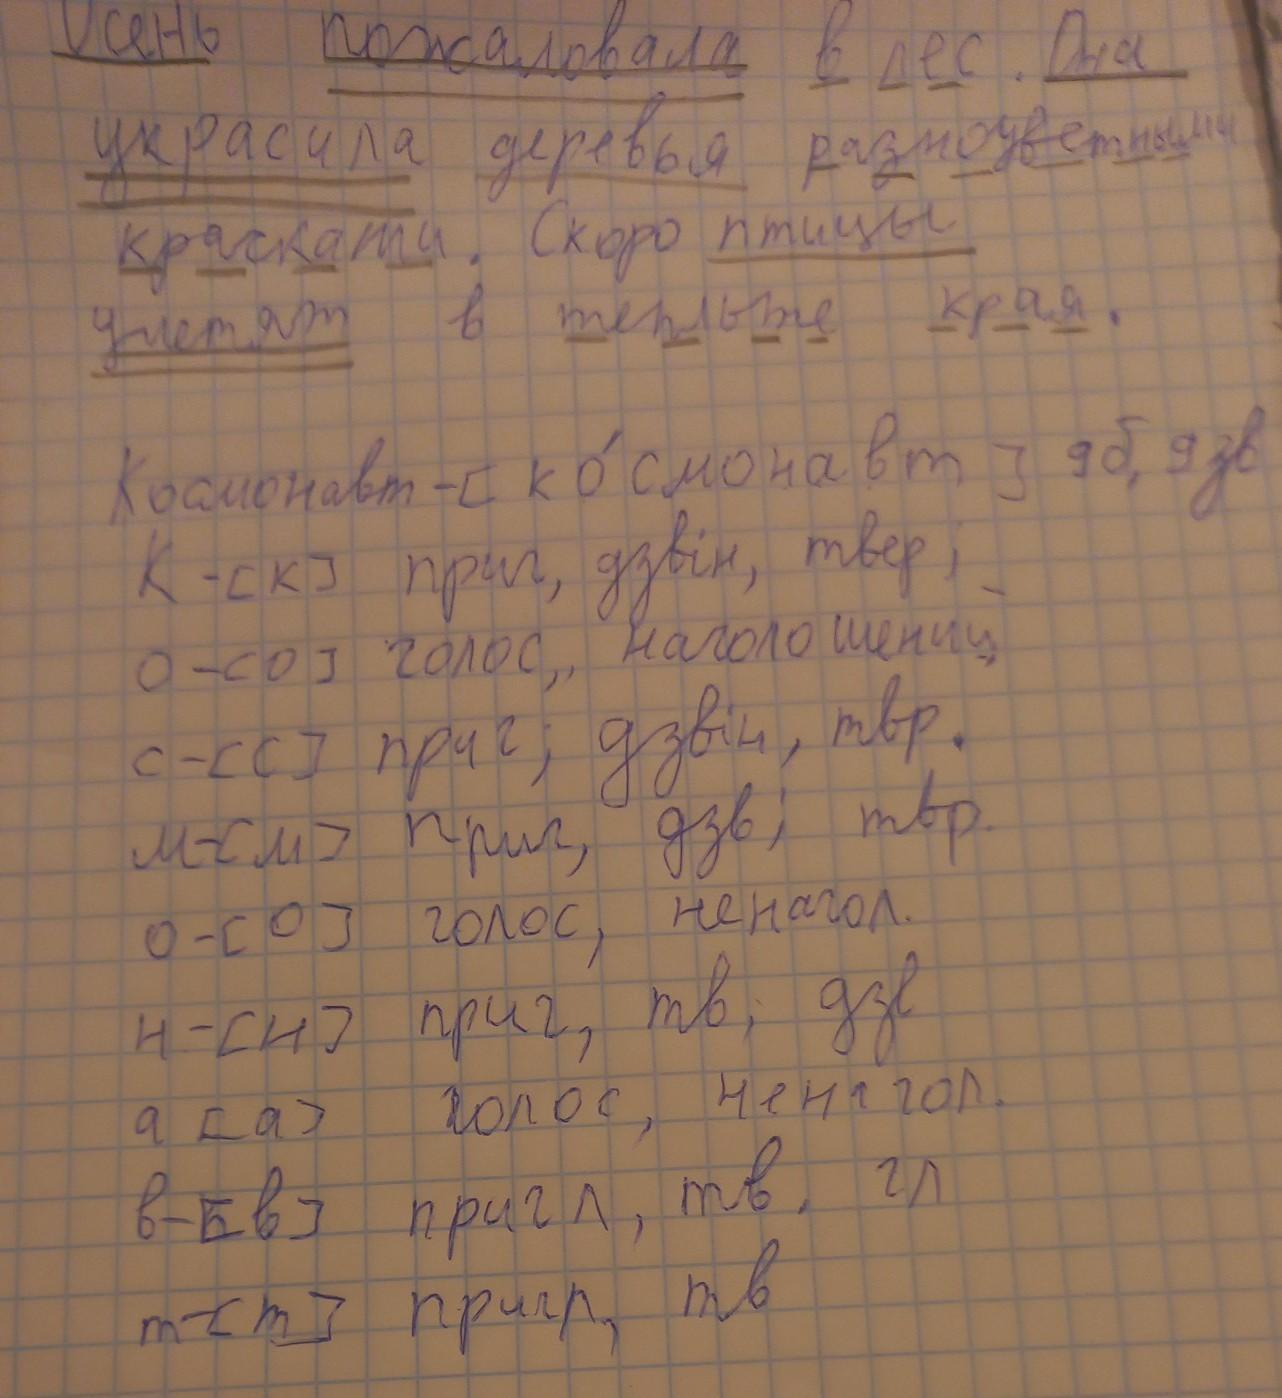 Осень пожаловала в лес. Она
украсила деревья разноцветными
красками. Скоро птицы
улетят в теплые края.
Космонавт-[ко́смонавт] 9б, 9зв
К-[к] приг, дзвін, твер;
о-[о] голос,, наголошениц
с-[с] приг; дзвін, твр.
м-[м] приг, дзв; твр.
о-[о] голос, ненагол.
н-[н] приг, тв; дзв
а [а] голос, ненагол.
в-[в] пригл, тв. гл
т-[т] пригл, тв